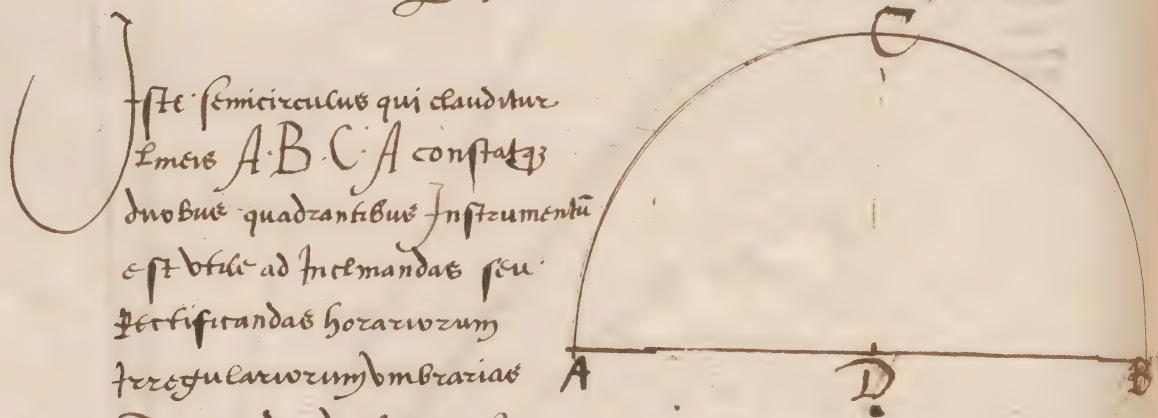 C
Iste semicirculus qui clauditur
lineis A·B·C·A constatqꝫ
duobus quadrantibus Instrumentū
est vtile ad Inclinandas seu
Rectificandas horariorum
Irregulariorum vmbrarias
A D B